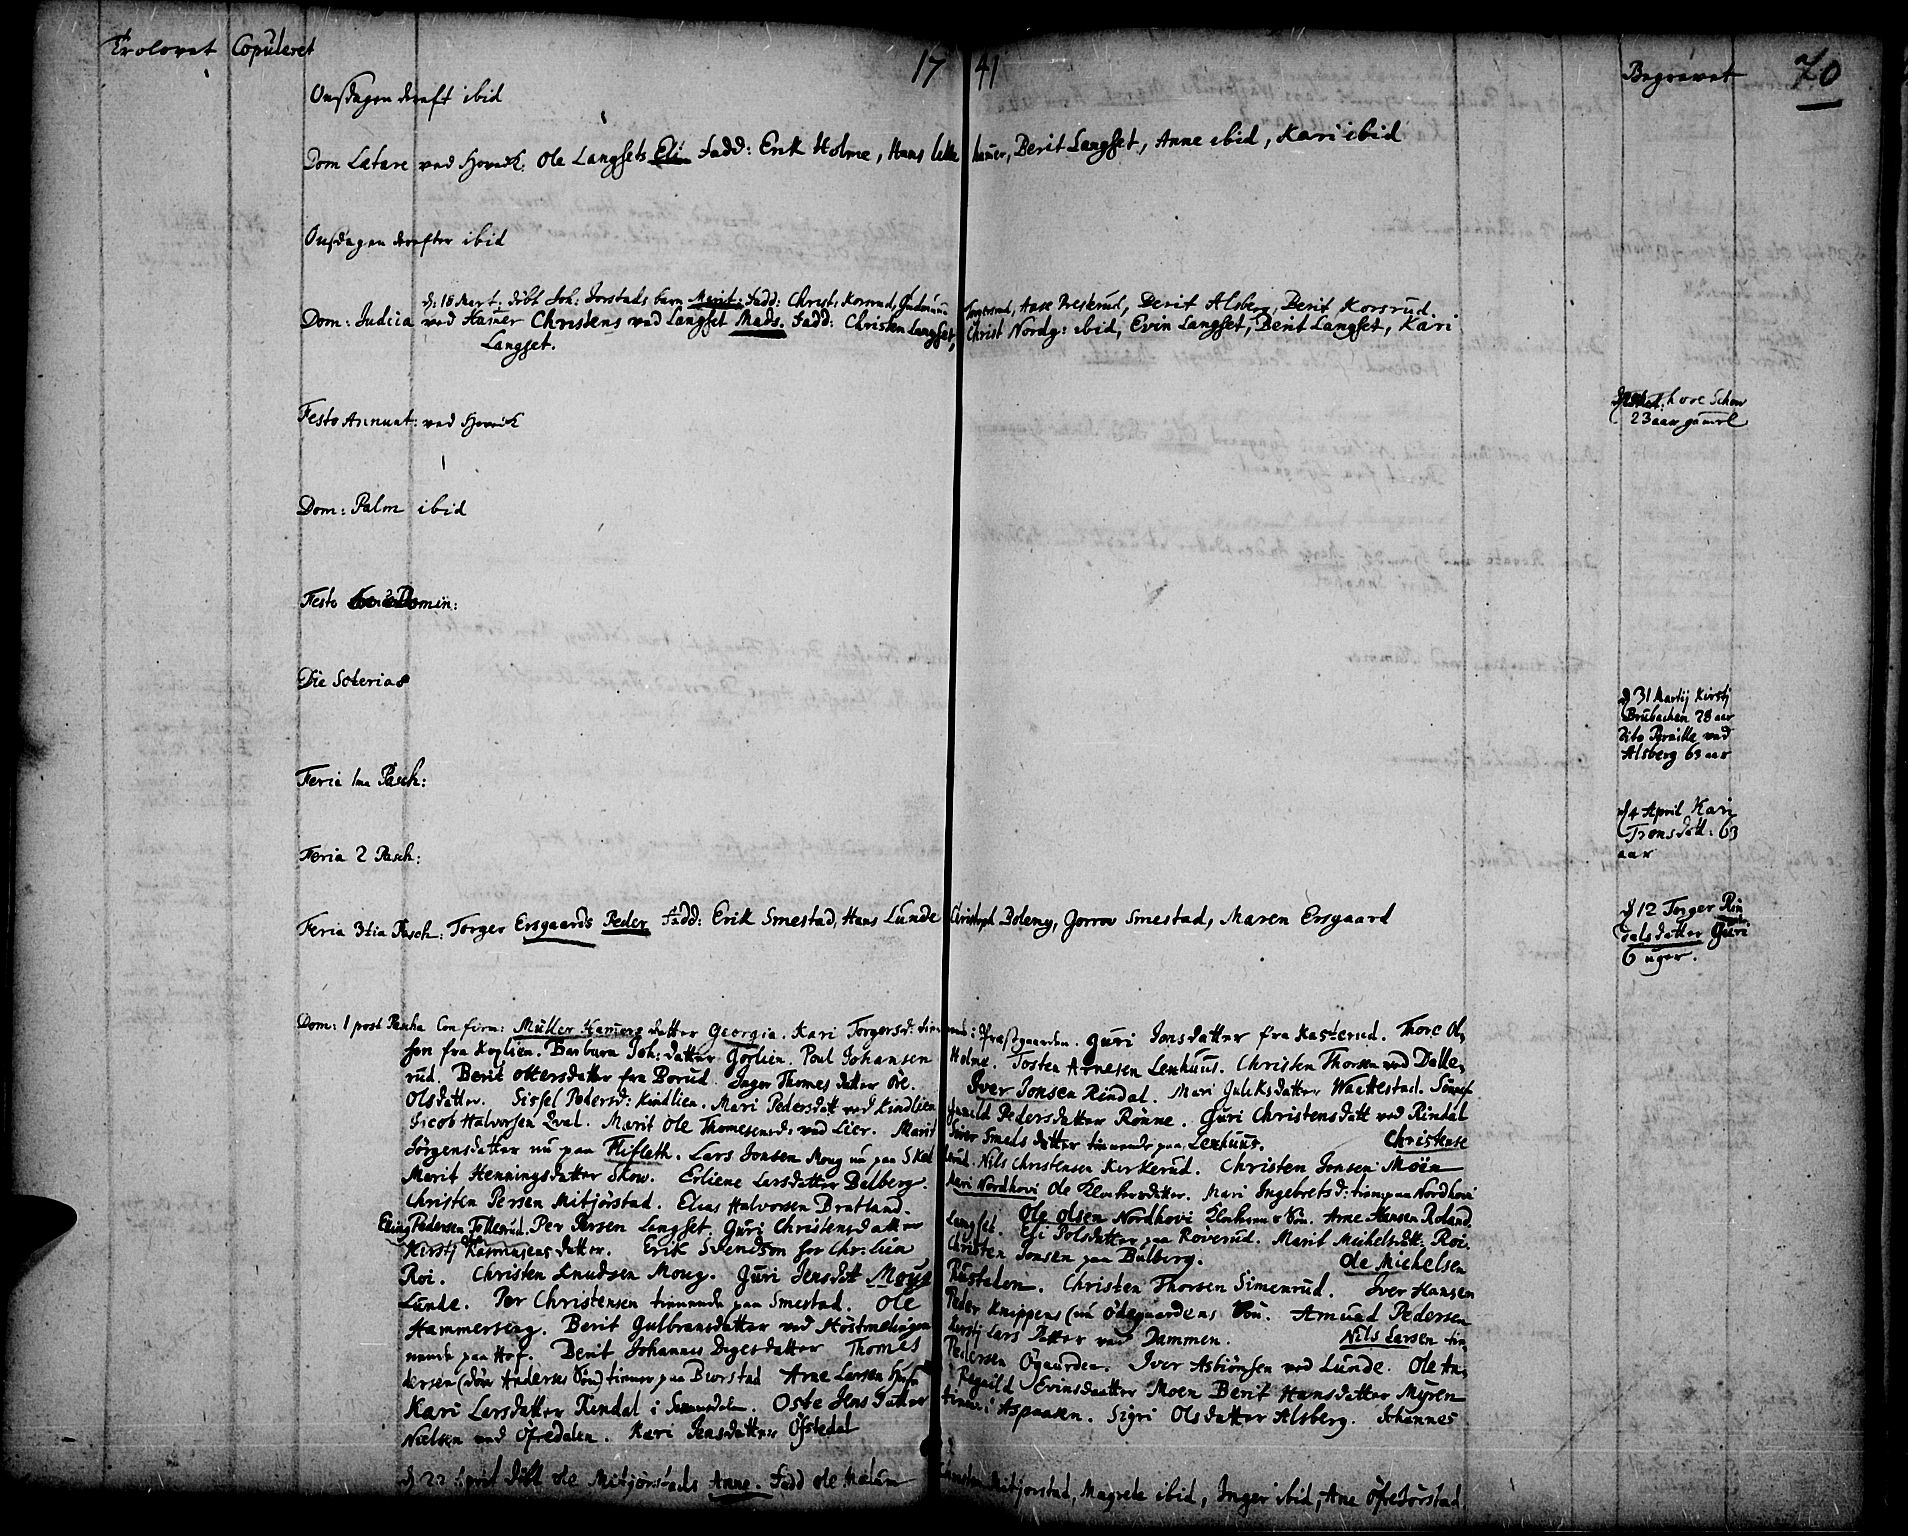 Trolovet Copuleret 17 41 Begravet 70
Onsdagen dereft ibid
Dom Lætare ved Ole Langsets Eli Fadd: Erik Holme, Hans hamer, Berit Langset, Anne ibid, Kari ibid
Onsdagen derefter ibid
d: 18 Mart: døbt Joh: Jorstads barn Marit: Fadd: Christ: Korsrud, Gudmun Berit Alsberg, Berit Korsrud.
Dom: Judica ved Hamer Christens ved Langset Mads. Fadd: Christen Langset, Christ Nordg: ibid, Evin Langset, Berit Langset, Kari
Langset.
Festo Annunt: ved
hore Schow
23 aar gamel
Dom: Palm ibid
Festo Domin:
Die Soterias
d 31 Martij Kirstj
Brubachen 78 aar
Dito Pernille ved
Alsberg 63 aar
Feria 1ma Pasch:
d 4 April Kari
Tronsdatt: 63
aar
Feria 2 Pasch:
Feria 3tia Pasch: Torger Ersgaards Peder Fadd: Erik Smestad, Hans Lunde Christoph Boleng, Jorron Smestad, Maren Ersgaard
d 12 Torger Rin
dalsdatter Guri
6 uger.
Dom: 1 post Pascha Confirm: Müller Hamers datter Georgia. Kari Torgersd: Præstgaarden. Guri Jonsdatter fra Kasterud. Thore Ol,
sen fra Koglien. Barbara Joh: datter Gorlien. Poul Johansen Holme. Tosten Arnesen Lenhuus. Christen Thorsen ved Dalle,
rud. Berit Ottersdatter fra Borud. Inger Thomesdatter Øre. Iver Jonsen Rindal. Mari Juliksdatter Wattestad.
Olsdatter. Sissel Pedersd: Kindlien. Mari Pedersdatt ved Kindlien Pedersdatter Rønne. Guri Christensdatt ved Rindal
Jacob Halvorsen Qval. Marit Ole Thomesensd: ved Lier. Marit Smeds datter tienende paa Lenhuus. Christense
Jørgensdatter nu paa Flifleth. Lars Jonsen Moug nu paa Nils Christensen Kirkerud. Christen Jonsen Moën
Marit Henningsdatter Skow. Erliene Larsdatter Balberg. Mari Nordhovi Ole Klockersdatter. Mari Ingebretsd: tien: paa Nordhovi
Christen Persen Mitjørstad. Elias Halvorsen Bratland. Ole Olsen Nordhovi Søn. Arne Hansen Roland.
Pedersen Follerud. Per Persen Langset. Guri Christensdatter Langset. Eli Polsdatter paa Røverud. Marit Michelsdatt: Roi.
Kirstj Rasmusens datter. Erik Svendsen for Chr: Lien Christen Jonsen paa Balberg. Ole Michelsen
Roi. Christen Knudsen Moug. Guri Jensdatt Moug Rustaden. Christen Thorsen Simenrud. Iver Hansen
Lunde. Per Christensen tienende paa Smestad. Ole Peder Knippens (nu Ødegaardens Søn. Amund Pedersen
Hammerseng. Berit Gulbransdatter ved Høstmelingen Kirstj Lars Datter ved Dammen. Nils Larsen tie,
nende paa Hof. Berit Johannes Digesdatter Thomes Pedersen Øgaarden. Iver Asbiørnsen ved Lunde. Ole An,
dersen (Anderses Søn) tiener paa Biørstad Arne Larsen Ragnild Evinsdatter Moen Berit Hansdatter Myren
Kari Larsdatter Rindal i Oste Jens datter tiener i Aspaaken. Sigri Olsdatter Alsberg. Johannes
Nielsen ved Øfredalen. Kari Jensdatter Øfstedal
d 22 April døbt Ole Mitjørstads Anne. Fadd Ole Mælum Christen Mitjorstad, Magrete ibid, Inger ibid, Ane Øfrejørstad